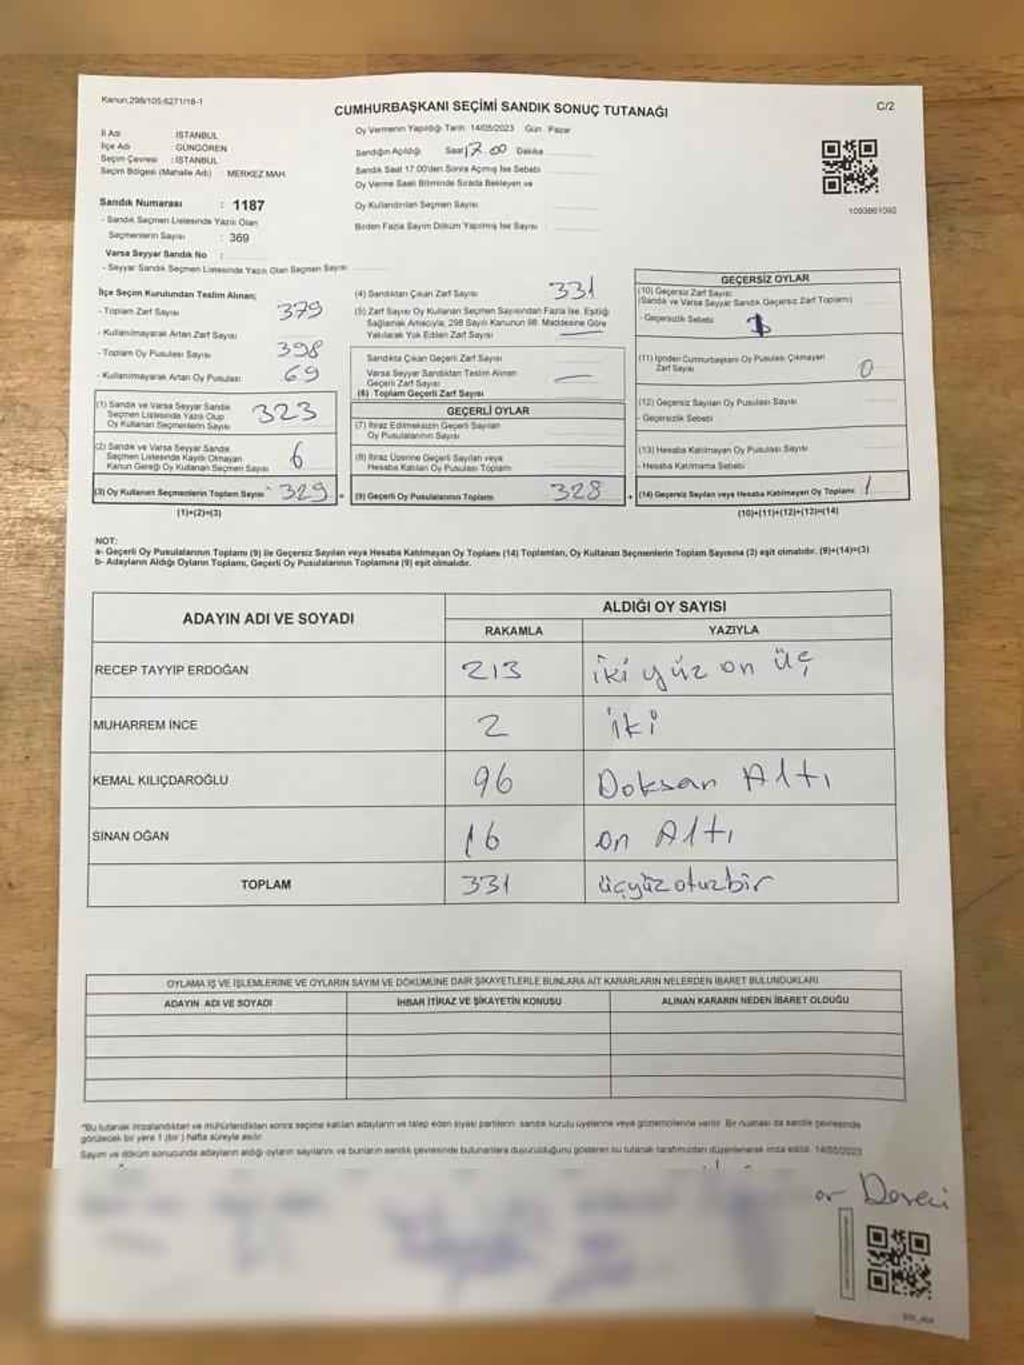 Kanun;298/105;6271/18-1
CUMHURBAŞKANI SEÇİMİ SANDIK SONUÇ TUTANAĞI
C/2
İl Adı : İSTANBUL
İlçe Adı : GÜNGÖREN
Seçim Çevresi : İSTANBUL
Seçim Bölgesi (Mahalle Adı) MERKEZ MAH.
Oy Vermenin Yapıldığı Tarih 14/05/2023 Gün : Pazar
Sandığın Açıldığı Saat 17.00 Dakika
Sandık Saat 17.00'den Sonra Açılmış İse Sebebi
Oy Verme Saati Bitiminde Sırada Bekleyen ve
Oy Kullandırılan Seçmen Sayısı
Birden Fazla Sayım Döküm Yapılmış İse Sayısı
Sandık Numarası : 1187
- Sandık Seçmen Listesinde Yazılı Olan
Seçmenlerin Sayısı : 369
Varsa Seyyar Sandık No :
- Seyyar Sandık Seçmen Listesinde Yazılı Olan Seçmen Sayısı
İlçe Seçim Kurulundan Teslim Alınan;
- Toplam Zarf Sayısı 379
- Kullanılmayarak Artan Zarf Sayısı
- Toplam Oy Pusulası Sayısı 398
- Kullanılmayarak Artan Oy Pusulası 69
(1) Sandık ve Varsa Seyyar Sandık
Seçmen Listesinde Yazılı Olup
Oy Kullanan Seçmenlerin Sayısı 323
(2) Sandık ve Varsa Seyyar Sandık
Seçmen Listesinde Kayıtlı Olmayan
Kanun Gereği Oy Kullanan Seçmen Sayısı 6
(3) Oy Kullanan Seçmenlerin Toplam Sayısı 329 =
(1)+(2)=(3)
(4) Sandıktan Çıkan Zarf Sayısı 331
(5) Zarf Sayısı Oy Kullanan Seçmen Sayısından Fazla İse, Eşitliği
Sağlamak Amacıyla, 298 Sayılı Kanunun 98. Maddesine Göre
Yakılarak Yok Edilen Zarf Sayısı
Sandıkta Çıkan Geçerli Zarf Sayısı
Varsa Seyyar Sandıktan Teslim Alınan
Geçerli Zarf Sayısı
(6) Toplam Geçerli Zarf Sayısı
GEÇERLİ OYLAR
(7) İtiraz Edilmeksizin Geçerli Sayılan
Oy Pusulalarının Sayısı
(8) İtiraz Üzerine Geçerli Sayılan veya
Hesaba Katılan Oy Pusulası Toplamı
(9) Geçerli Oy Pusulalarının Toplamı 328 +
GEÇERSİZ OYLAR
(10) Geçersiz Zarf Sayısı
(Sandık ve Varsa Seyyar Sandık Geçersiz Zarf Toplamı)
- Geçersizlik Sebebi
(11) İçinden Cumhurbaşkanı Oy Pusulası Çıkmayan
Zarf Sayısı 0
(12) Geçersiz Sayılan Oy Pusulası Sayısı
- Geçersizlik Sebebi
(13) Hesaba Katılmayan Oy Pusulası Sayısı
- Hesaba Katılmama Sebebi
(14) Geçersiz Sayılan veya Hesaba Katılmayan Oy Toplamı 1
(10)+(11)+(12)+(13)=(14)
NOT:
a- Geçerli Oy Pusulalarının Toplamı (9) ile Geçersiz Sayılan veya Hesaba Katılmayan Oy Toplamı (14) Toplamları, Oy Kullanan Seçmenlerin Toplam Sayısına (3) eşit olmalıdır. (9)+(14)=(3)
b- Adayların Aldığı Oyların Toplamı, Geçerli Oy Pusulalarının Toplamına (9) eşit olmalıdır.
ADAYIN ADI VE SOYADI
ALDIĞI OY SAYISI
RAKAMLA YAZIYLA
RECEP TAYYİP ERDOĞAN 213 iki yüz on üç
MUHARREM İNCE 2 iki
KEMAL KILIÇDAROĞLU 96 Doksan Altı
SİNAN OĞAN 16 on Altı
TOPLAM 331 üçyüzotuzbir
OYLAMA İŞ VE İŞLEMLERİNE VE OYLARIN SAYIM VE DÖKÜMÜNE DAİR ŞİKAYETLERLE BUNLARA AİT KARARLARIN NELERDEN İBARET BULUNDUKLARI
ADAYIN ADI VE SOYADI İHBAR İTİRAZ VE ŞİKAYETİN KONUSU ALINAN KARARIN NEDEN İBARET OLDUĞU
*Bu tutanak imzalandıktan ve mühürlendikten sonra seçime katılan adayların ve talep eden siyasi partilerin sandık kurulu üyelerine veya gözlemcilerine verilir. Bir nüshası da sandık çevresinde
görülecek bir yere 1 (bir) hafta süreyle asılır.
Sayım ve döküm sonucunda adayların aldığı oyların sayılarını ve bunların sandık çevresinde bulunanlara duyurulduğunu gösteren bu tutanak tarafımızdan düzenlenerek imza edildi. 14/05/2023
or Dereci